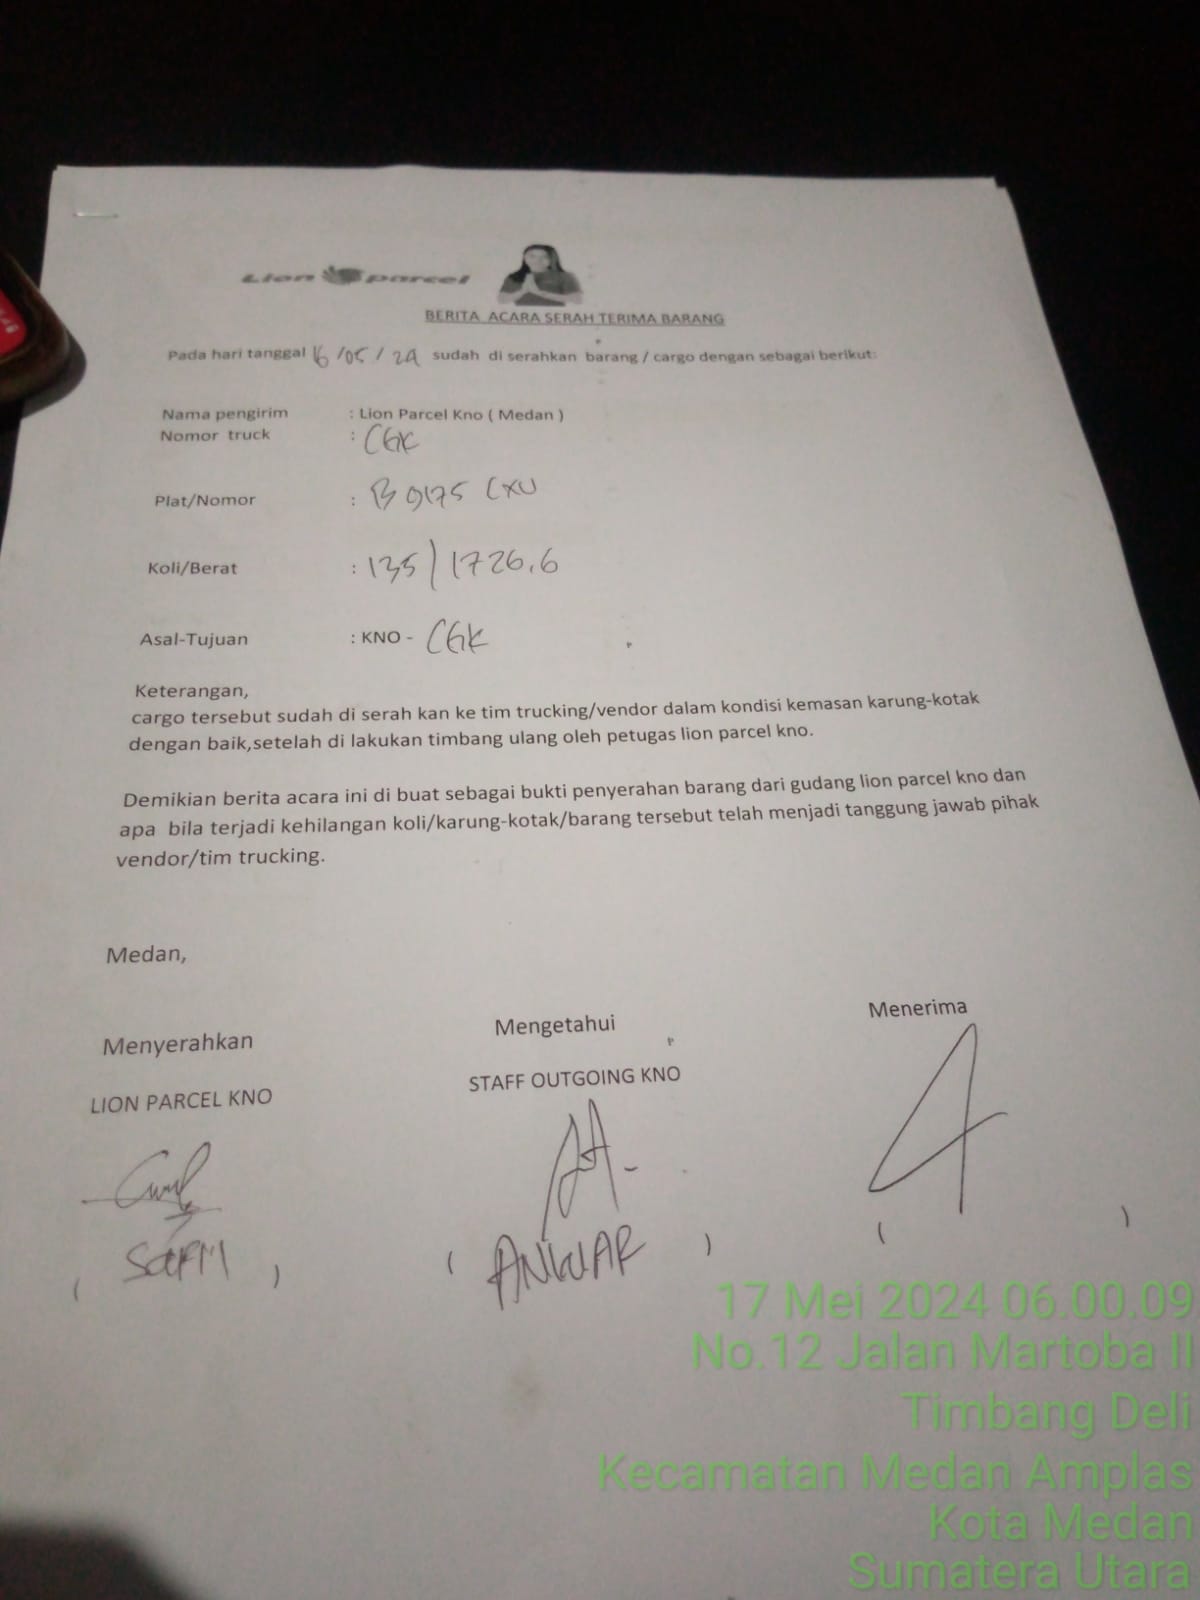 Lion parcel
BERITA ACARA SERAH TERIMA BARANG
Pada hari tanggal 16/05/24 sudah di serahkan barang / cargo dengan sebagai berikut:
Nama pengirim : Lion Parcel Kno ( Medan )
Nomor truck : CGK
Plat/Nomor : B 9175 CXU
Koli/Berat : 135/1726.6
Asal-Tujuan : KNO - CGK
Keterangan,
cargo tersebut sudah di serah kan ke tim trucking/vendor dalam kondisi kemasan karung-kotak
dengan baik,setelah di lakukan timbang ulang oleh petugas lion parcel kno.
Demikian berita acara ini di buat sebagai bukti penyerahan barang dari gudang lion parcel kno dan
apa bila terjadi kehilangan koli/karung-kotak/barang tersebut telah menjadi tanggung jawab pihak
vendor/tim trucking.
Medan,
Menyerahkan Mengetahui Menerima
LION PARCEL KNO STAFF OUTGOING KNO
( ) ( ANWAR ) ( )
17 Mei 2024 06.00.09
No.12 Jalan Martoba II
Timbang Deli
Kecamatan Medan Amplas
Kota Medan
Sumatera Utara